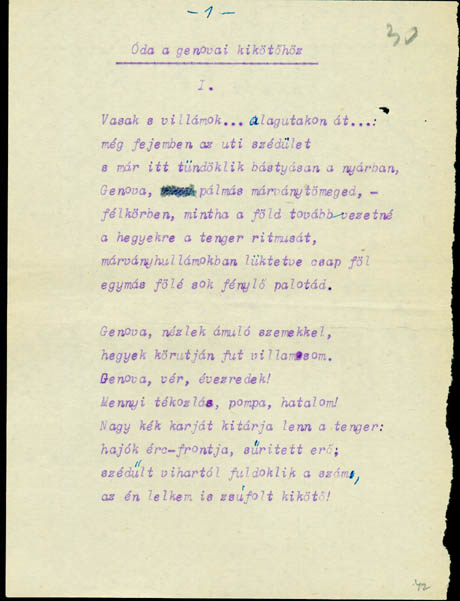 - 1 -
30
Óda a genovai kikötőhöz
I.
Vasak s villámok... alagutakon át...:
még fejemben az uti szédület
s már itt tündöklik bástyásan a nyárban,
Genova, pálmás márványtömeged, -
félkörben, mintha a föld tovább vezetné
a hegyekre a tenger ritmusát,
márványhullámokban lüktetve csap föl
egymás fölé sok fénylő palotád.
Genova, nézlek ámuló szemekkel,
hegyek körutján fut villamosom.
Genova, vér, évezredek!
Mennyi tékozlás, pompa, hatalom!
Nagy kék karját kitárja lenn a tenger:
hajók érc-frontja, sűritett erő;
szédült vihartól fuldoklik a szám,
az én lelkem is zsúfolt kikötő!
42